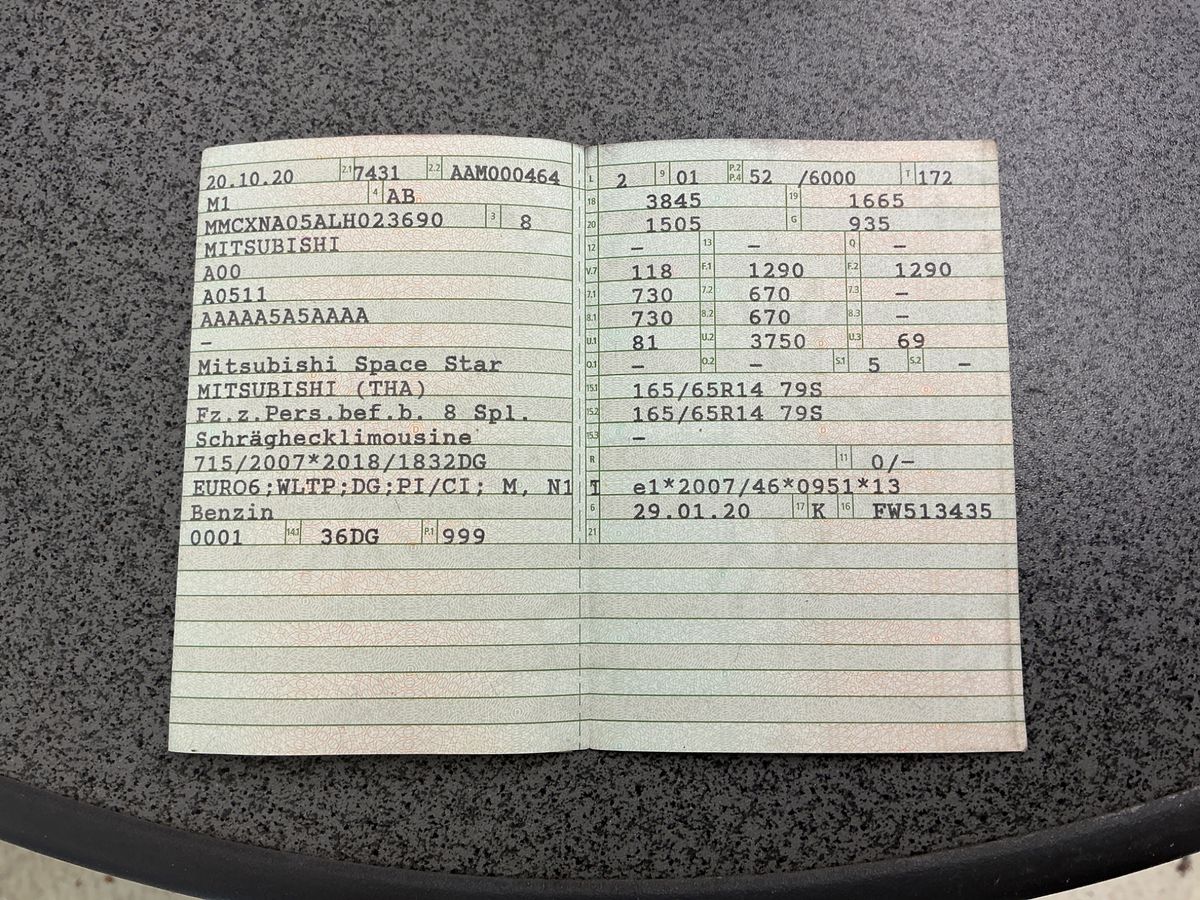 20.10.20 2.1 7431 2.2 AAM000464
M1 4 AB
MMCXNA05ALH023690 3 8
MITSUBISHI
A00
A0511
AAAAA5A5AAAA
–
Mitsubishi Space Star
MITSUBISHI (THA)
Fz.z.Pers.bef.b. 8 Spl.
Schräghecklimousine
715/2007*2018/1832DG
EURO6;WLTP;DG;PI/CI; M, N1 I
Benzin
0001 14.1 36DG P.1 999
L 2 9 01 P.2 P.4 52 /6000 T 172
18 3845 19 1665
20 1505 G 935
12 – 13 – Q –
V.7 118 F.1 1290 F.2 1290
7.1 730 7.2 670 7.3 –
8.1 730 8.2 670 8.3 –
U.1 81 U.2 3750 U.3 69
O.1 – O.2 – S.1 5 S.2 –
15.1 165/65R14 79S
15.2 165/65R14 79S
15.3 –
R 11 0/–
e1*2007/46*0951*13
6 29.01.20 17 K 16 FW513435
21